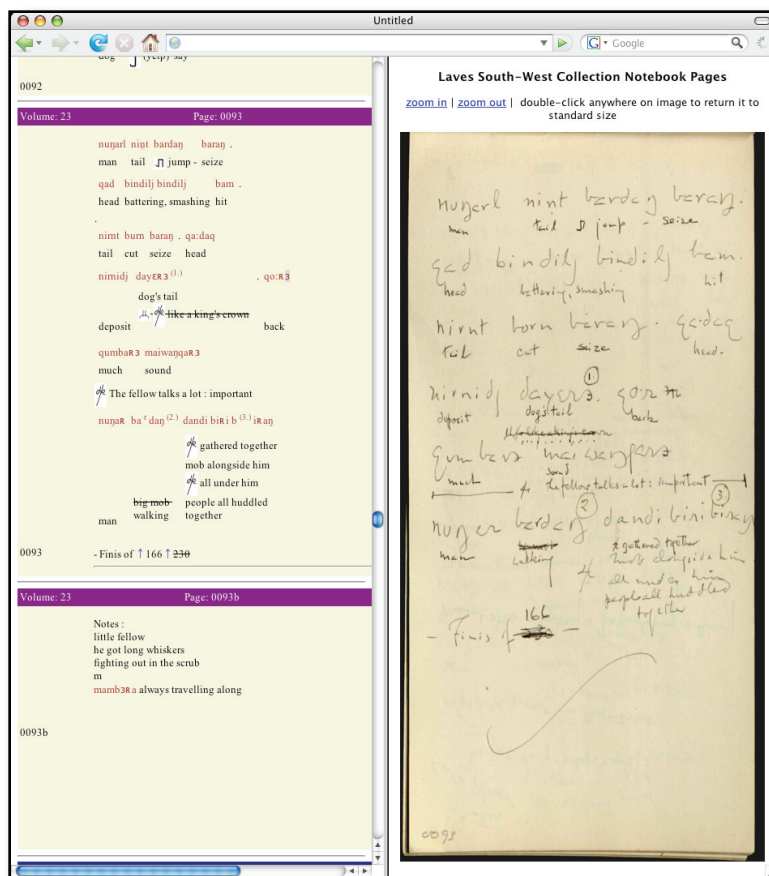 Untitled
Google
dog (yelp) say
0092
Volume: 23 Page: 0093
nuŋarl niṇt bardaŋ baraŋ .
man tail jump - seize
qad bindilj bindilj bam .
head battering, smashing hit
.
nirnt burn baraŋ . qa:daq
tail cut seize head
nirnidj dayɛʀɜ (1.) . qo:ʀɜ
dog's tail
- like a king's crown
deposit back
qumbaʀɜ maiwaŋqaʀɜ
much sound
The fellow talks a lot : important
nuŋaʀ ba ʳ daŋ (2.) dandi biʀi b (3.) iʀaŋ
gathered together
mob alongside him
all under him
big mob people all huddled
walking together
man
0093 - Finis of ↑ 166 ↑ 230
Volume: 23 Page: 0093b
Notes :
little fellow
he got long whiskers
fighting out in the scrub
m
mambɜʀa always travelling along
0093b
Laves South-West Collection Notebook Pages
zoom in | zoom out | double-click anywhere on image to return it to
standard size
nuŋarl nint bardaŋ baraŋ.
man tail jump - seize
qad bindilj bindilj bam.
head battering, smashing hit
nirnt born baraŋ. qa:daq
tail cut seize head.
1.
nirnidj
deposit dog's tail back
much sound
the fellow talks a lot : important
2 3
man walking
gathered together
mob alongside him
all under him
people all huddled
together
166
- Finis of 230 -
0093